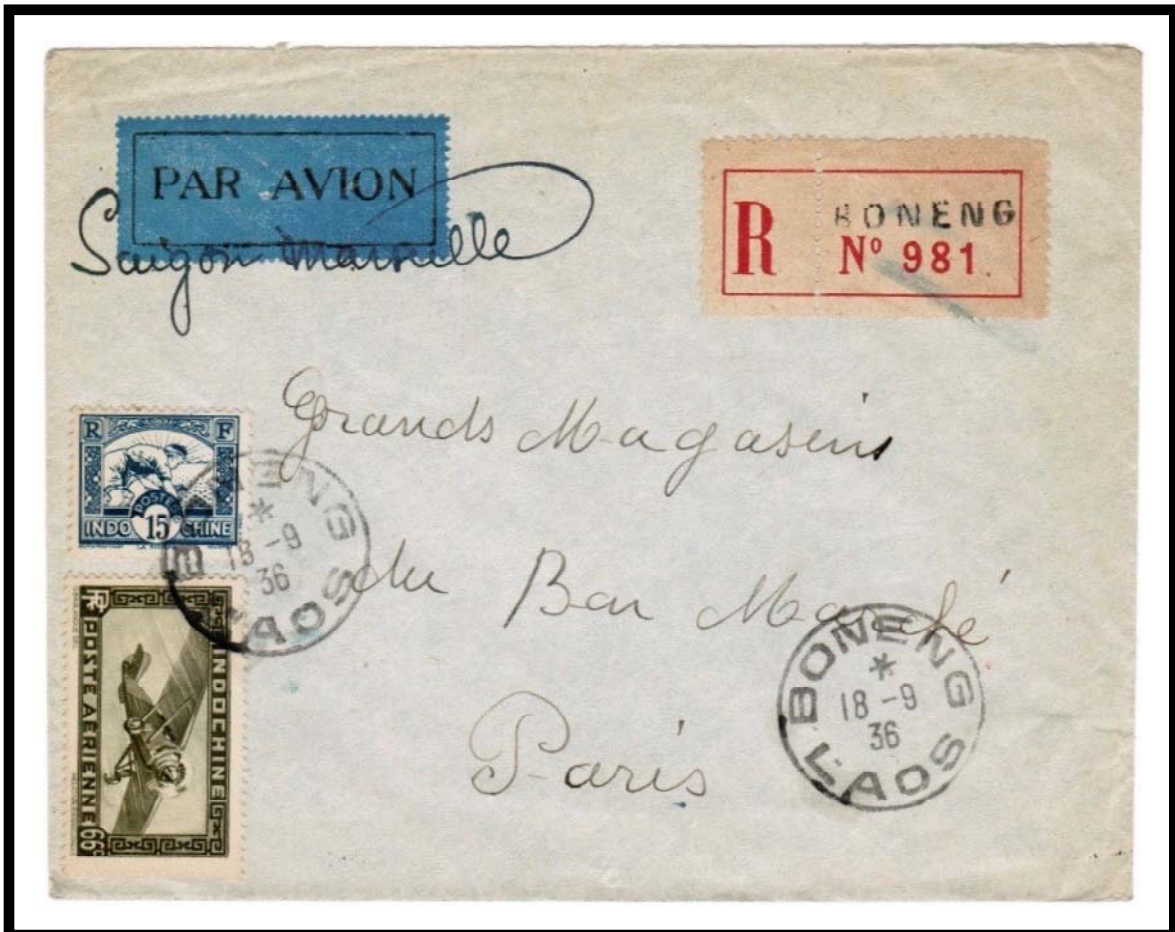 PAR AVION
Saigon Marseille
R BONENG
Nº 981
Grands Magasins
du Bon Marché
Paris
R F
POSTES
INDO 15 CHINE
BONENG
18-9
36
LAOS
RF INDOCHINE
POSTE AÉRIENNE 66c
BONENG
18-9
36
LAOS